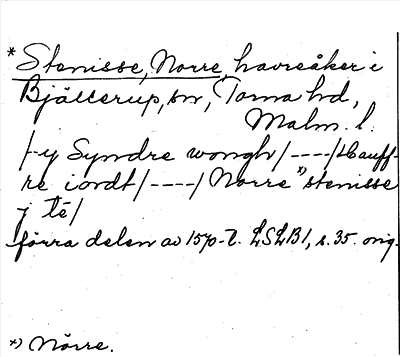 * Stenisse, Norre, havreåker i
Bjällerup, sn, Torna hd,
Malm. l.
/-y Syndre wongh/----/Hauff-
re iordt/----/Norre *) stenisse
j te/
förra delen av 1570-t. LSLB1, s. 35. orig.
*) Nörre.